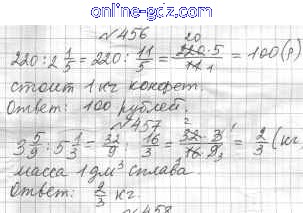 online-gdz.com
№456
220 : 2 1/5 = 220 : 11/5 = 220·5/11 = 100 (р)
стоит 1 кг конфет.
Ответ: 100 рублей.
№457
3 5/9 : 5 1/3 = 32/9 : 16/3 = 32·3/16·9 = 2/3 (кг
масса 1 дм³ сплава
Ответ: 2/3 кг.
№458